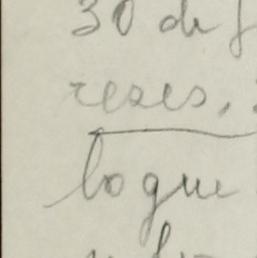 30 de
reses,
logue